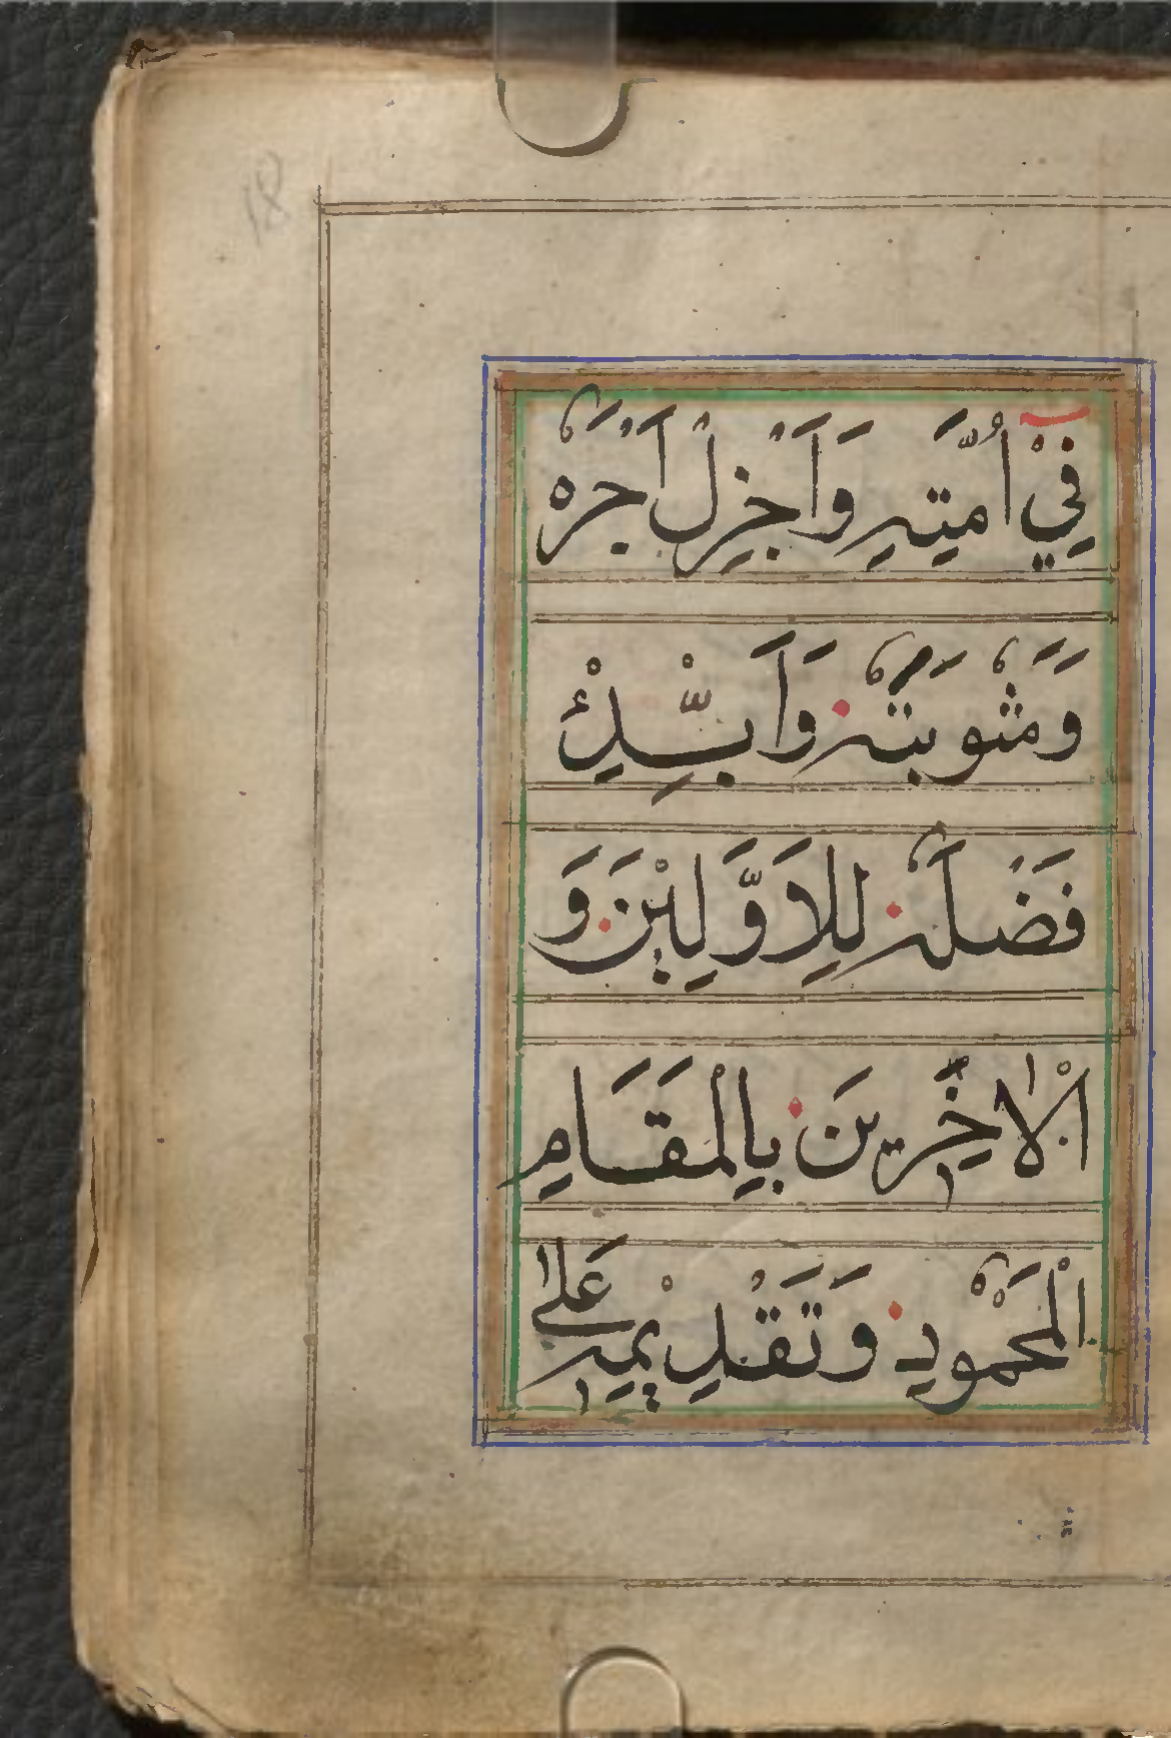 فِيْ اُمَّتِهٖ وَاَجْزِلْ اَجْرَهٗ
وَمَثُوْبَتَهٗ وَاَبِّدْئُ
فَضْلَهٗ لِلْاَوَّلِيْنَ وَ
الْاٰخِرِيْنَ بِالْمَقَامِ
الْمَحْمُوْدِ وَتَقْدِيْمِهٖ عَلٰى